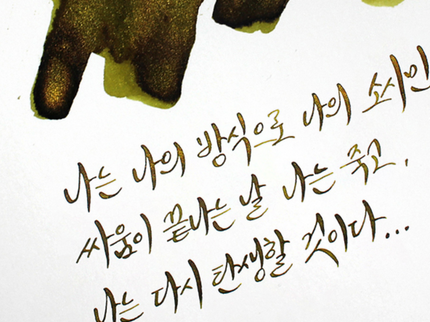 나는 나의 방식으로 나의 소시민
싸움이 끝나는 날 나는 죽고,
나는 다시 탄생할 것이다...